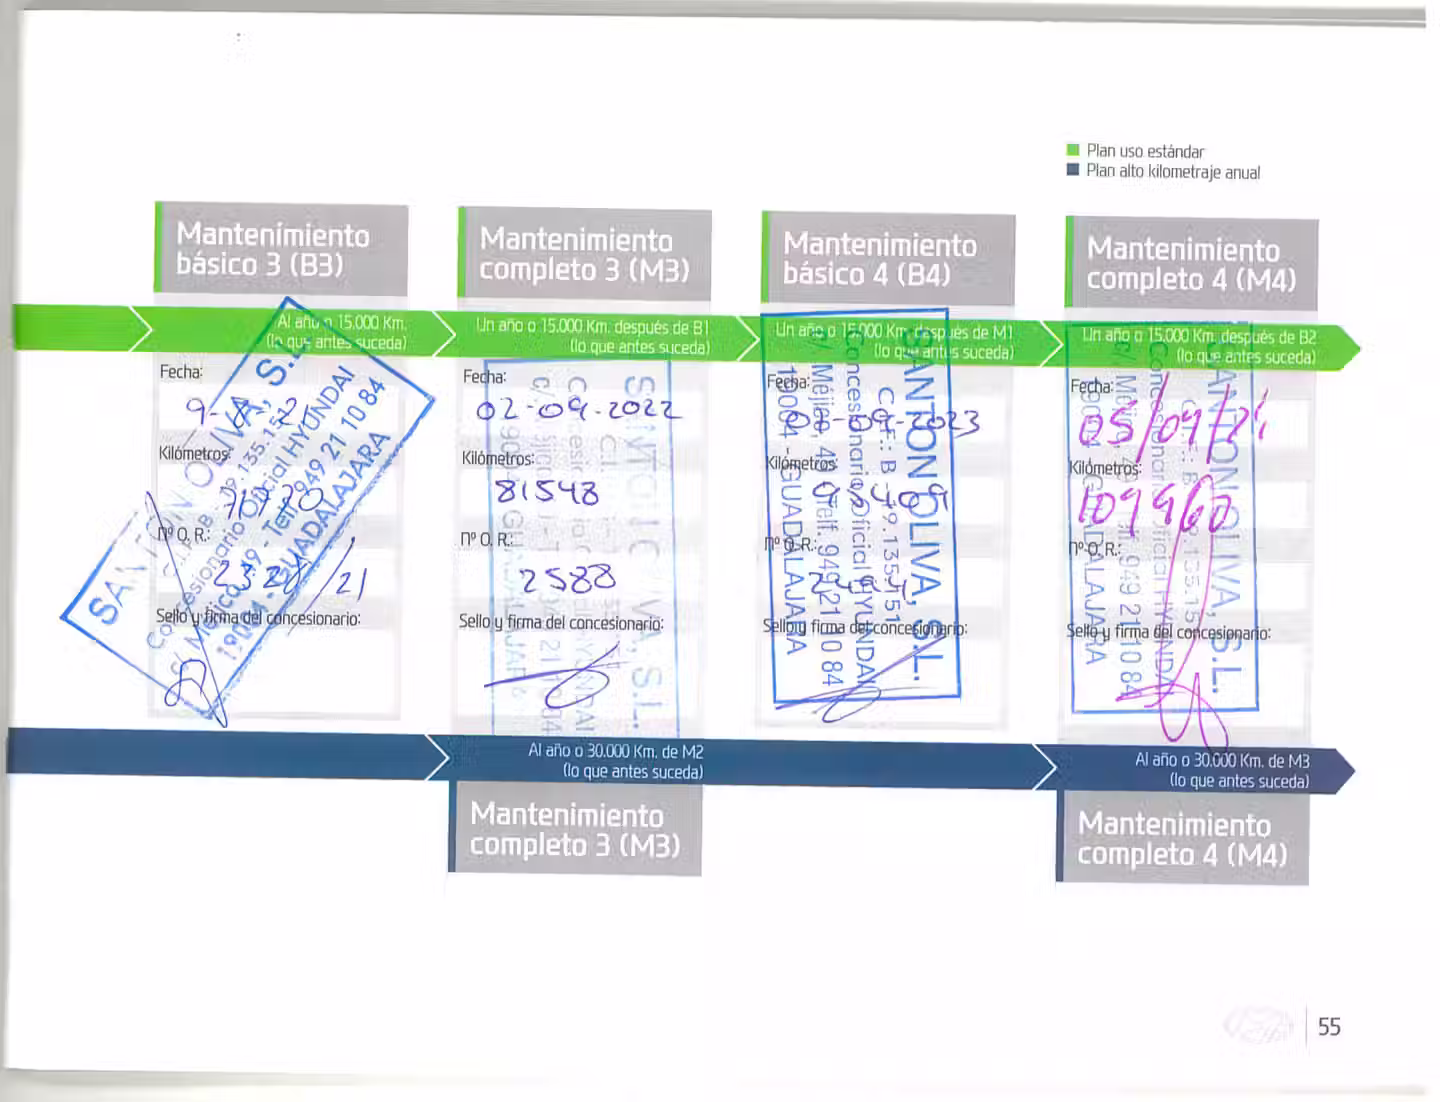 Plan uso estándar
Plan alto kilometraje anual
Mantenimiento
básico 3 (B3)
Al año o 15.000 Km.
(lo que antes suceda)
Fecha:
Kilómetros:
nº O. R.:
Sello y firma del concesionario:
SANTON OLIVA, S.L.
Concesionario Oficial HYUNDAI
Telf. 949 21 10 84
GUADALAJARA
Mantenimiento
completo 3 (M3)
Un año o 15.000 Km. después de B1
(lo que antes suceda)
Fecha:
02-09-2022
Kilómetros:
81548
nº O. R.:
2588
Sello y firma del concesionario:
Mantenimiento
básico 4 (B4)
Un año o 15.000 Km. después de M1
(lo que antes suceda)
Fecha:
Kilómetros:
nº O. R.:
Sello y firma del concesionario:
SANTON OLIVA, S.L.
Concesionario Oficial HYUNDAI
Telf. 949 21 10 84
19004 - GUADALAJARA
Mantenimiento
completo 4 (M4)
Un año o 15.000 Km. después de B2
(lo que antes suceda)
Fecha:
Kilómetros:
nº O. R.:
Sello y firma del concesionario:
SANTON OLIVA, S.L.
949 21 10 84
Al año o 30.000 Km. de M2
(lo que antes suceda)
Mantenimiento
completo 3 (M3)
Al año o 30.000 Km. de M3
(lo que antes suceda)
Mantenimiento
completo 4 (M4)
55